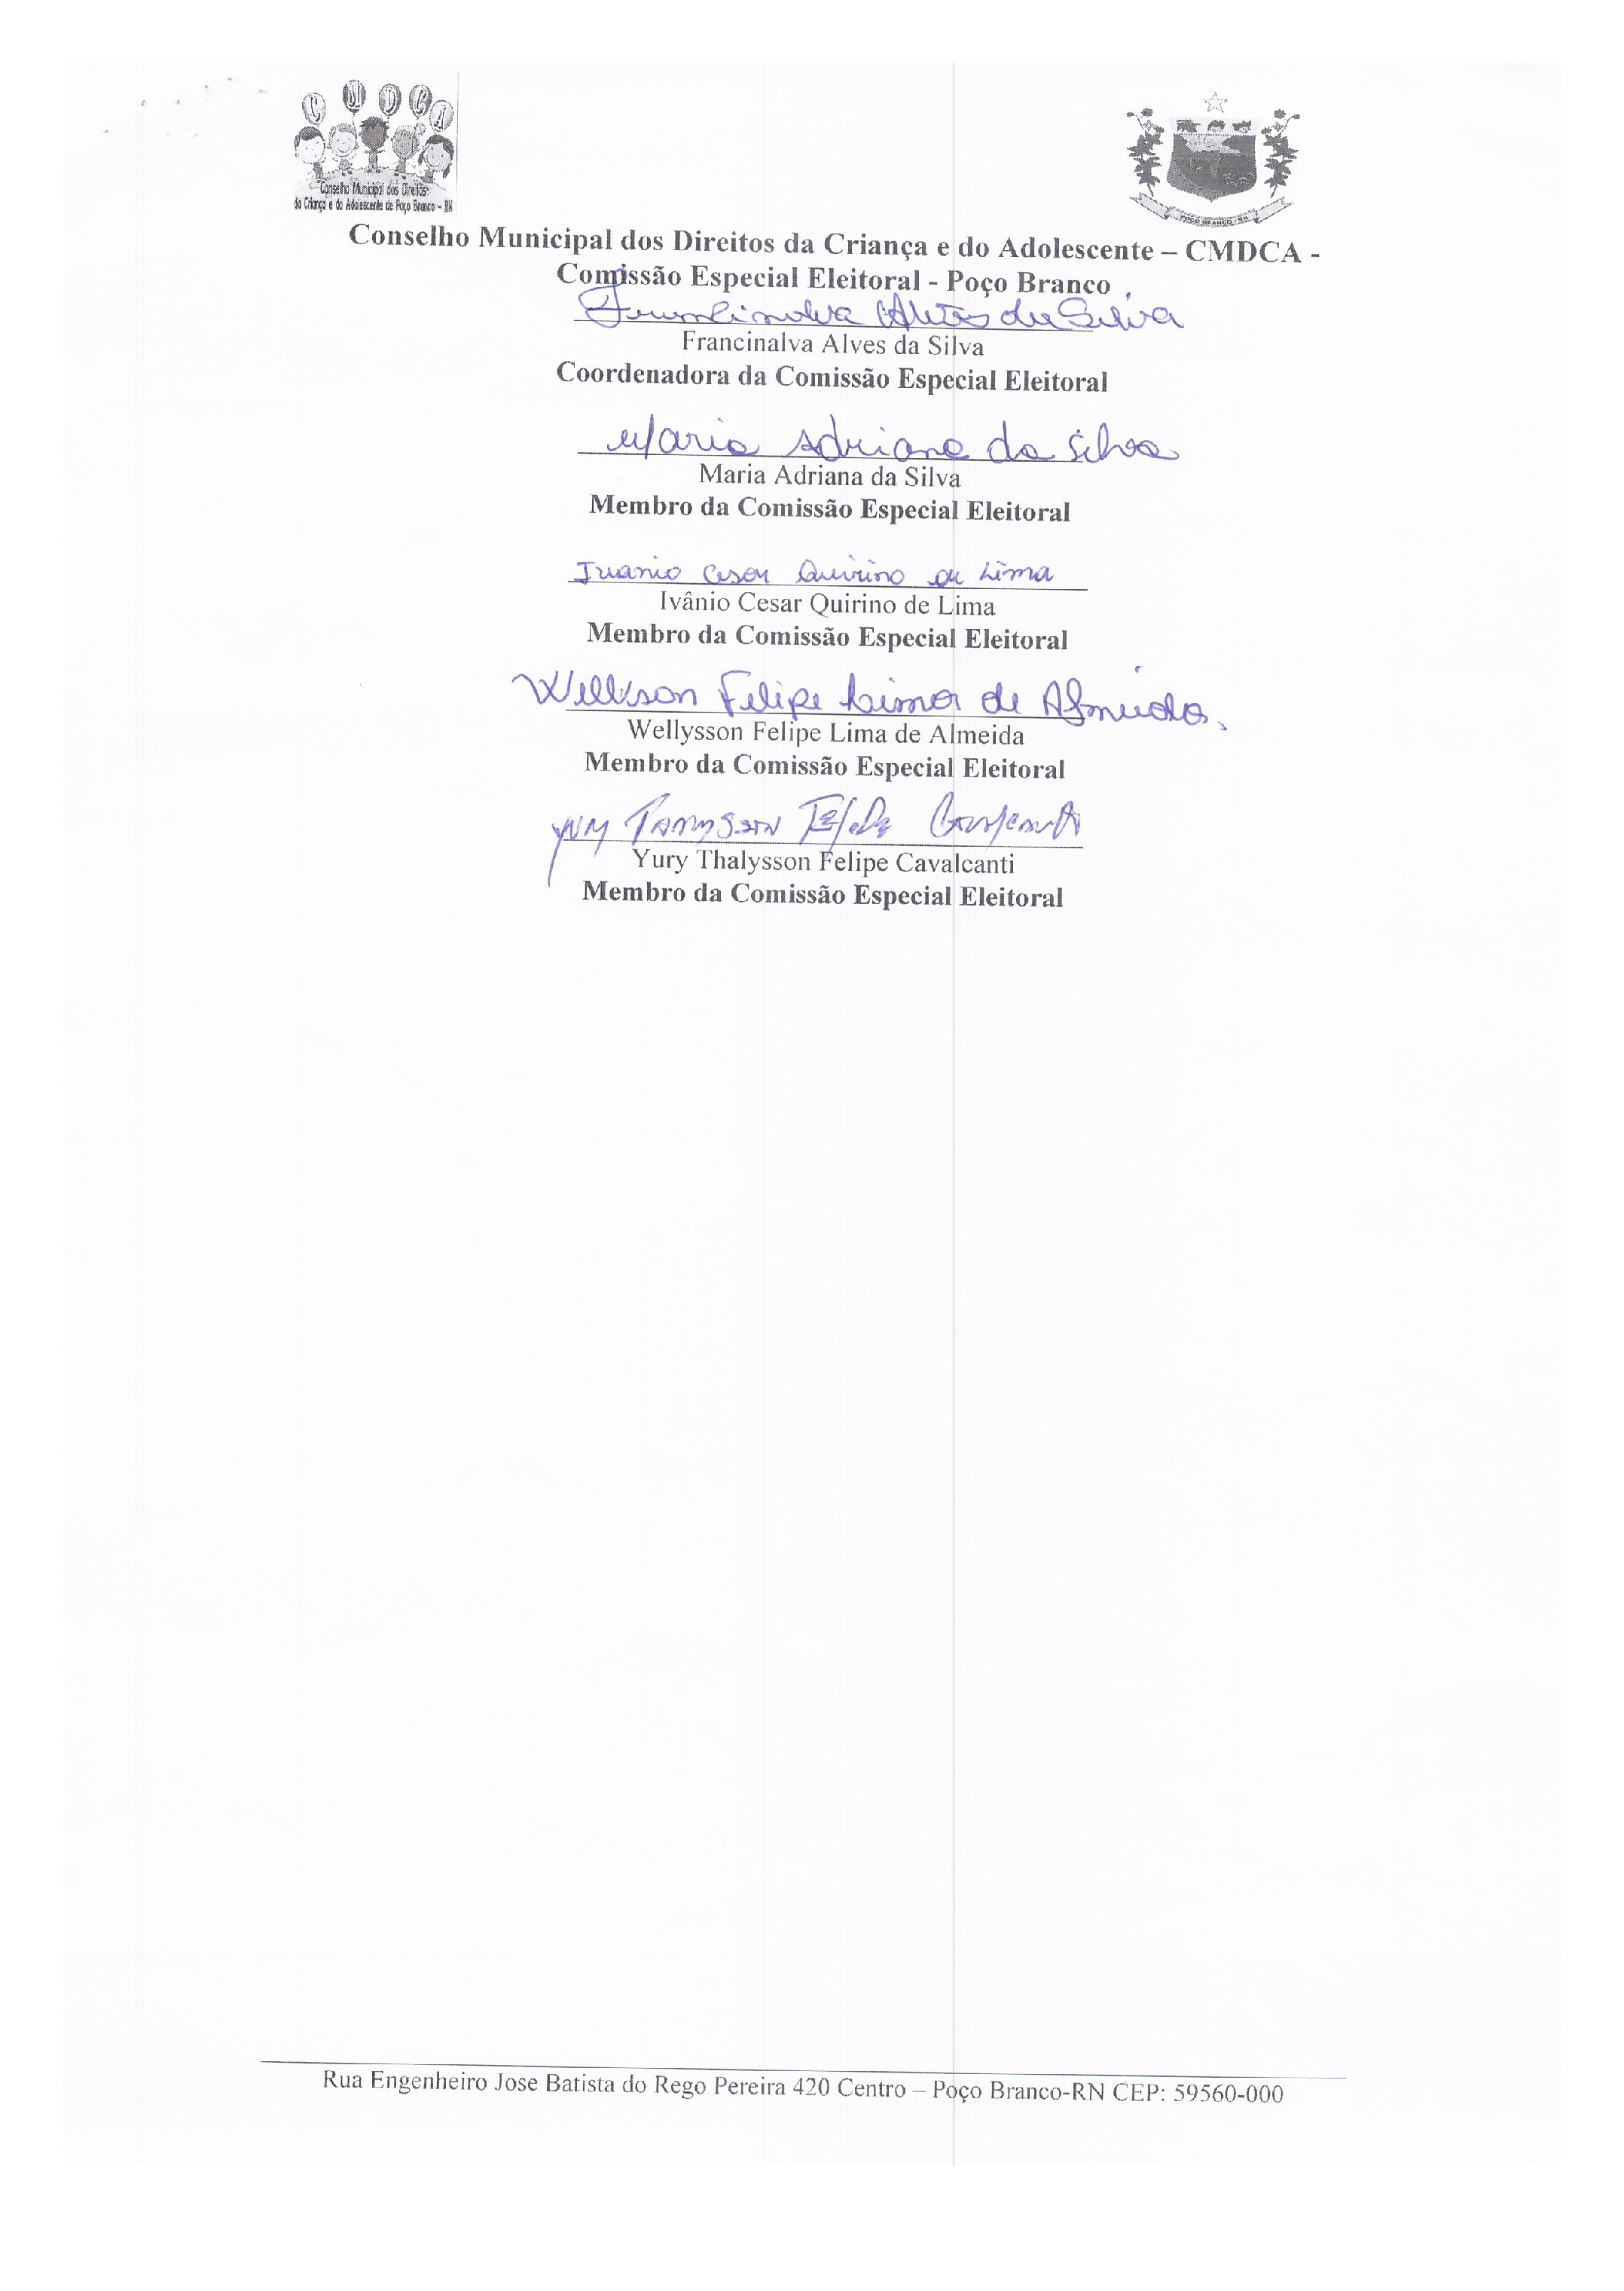 C M D C A
Conselho Municipal dos Direitos
da Criança e do Adolescente de Poço Branco - RN
POÇO BRANCO - RN
Conselho Municipal dos Direitos da Criança e do Adolescente – CMDCA -
Comissão Especial Eleitoral - Poço Branco
Francinalva Alves da Silva
Francinalva Alves da Silva
Coordenadora da Comissão Especial Eleitoral
Maria Adriana da Silva
Maria Adriana da Silva
Membro da Comissão Especial Eleitoral
Ivanio Cesar Quirino de Lima
Ivânio Cesar Quirino de Lima
Membro da Comissão Especial Eleitoral
Wellysson Felipe Lima de Almeida.
Wellysson Felipe Lima de Almeida
Membro da Comissão Especial Eleitoral
Yury Thalysson Felipe Cavalcanti
Yury Thalysson Felipe Cavalcanti
Membro da Comissão Especial Eleitoral
Rua Engenheiro Jose Batista do Rego Pereira 420 Centro – Poço Branco-RN CEP: 59560-000